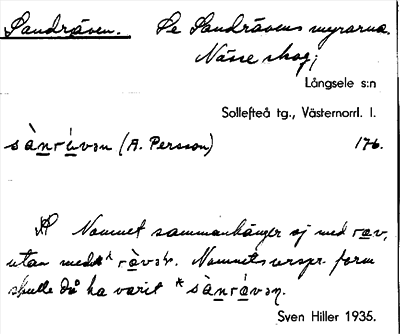 Sandräven. Se Sandrävens myrarna.
Nässe skog;
Långsele s:n
Sollefteå tg., Västernorrl. l.
sànrávən (A. Persson) 176.
Namnet sammanhänger ej med rav,
utan med *ràvən. Namnets urspr. form
skulle då ha varit *sànrávən.
Sven Hiller 1935.